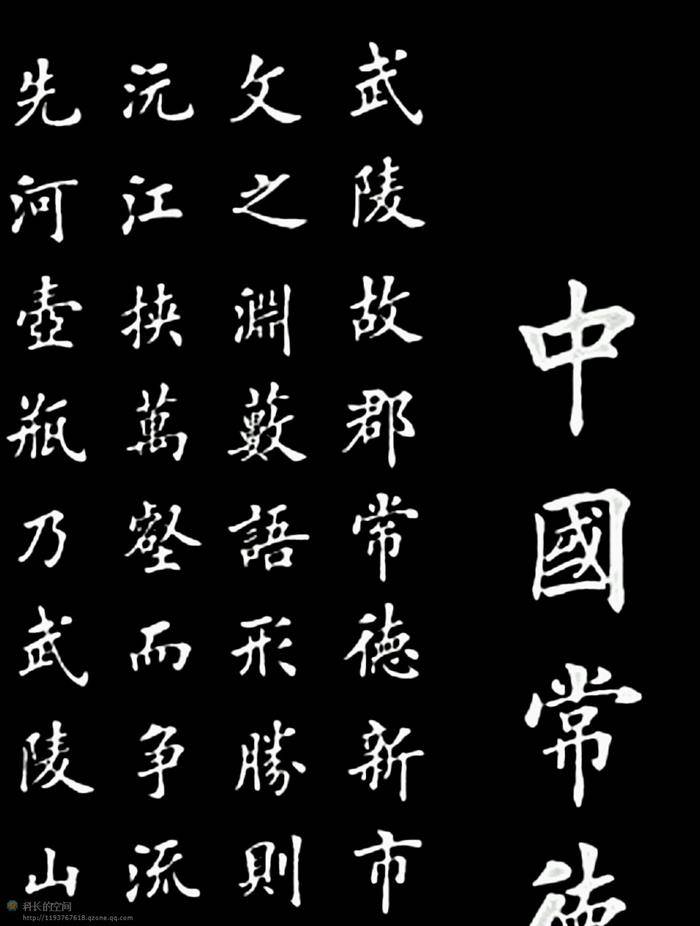 中國常德
武陵故郡常德新市
文之淵藪語形勝則
沅江挾萬壑而争流
先河壺瓶乃武陵山
科长的空间
http://1193767618.qzone.qq.com